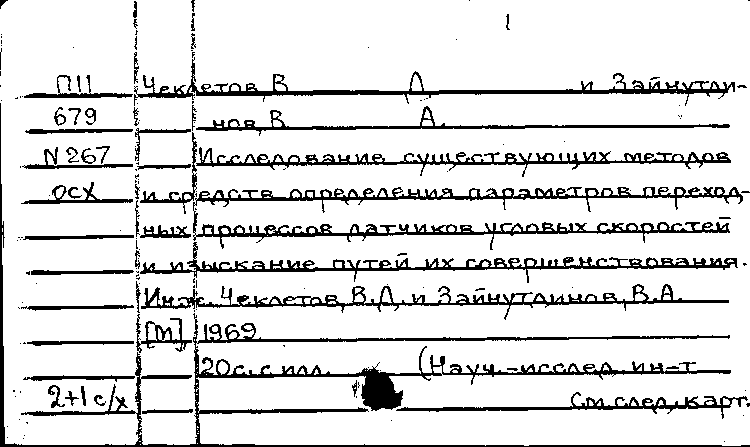 1
П11 Чеклетов, В Д. и Зайнутди-
679 нов, В А.
N 267 Исследование существующих методов
ОСХ и средств определения параметров переход-
ных процессов датчиков угловых скоростей
и изыскание путей их совершенствования.
Инж. Чеклетов, В.Д. и Зайнутдинов, В.А.
[М] 1969.
20 с. с илл. (Науч.-исслед. ин-т
2+1 с/х См.след.карт.